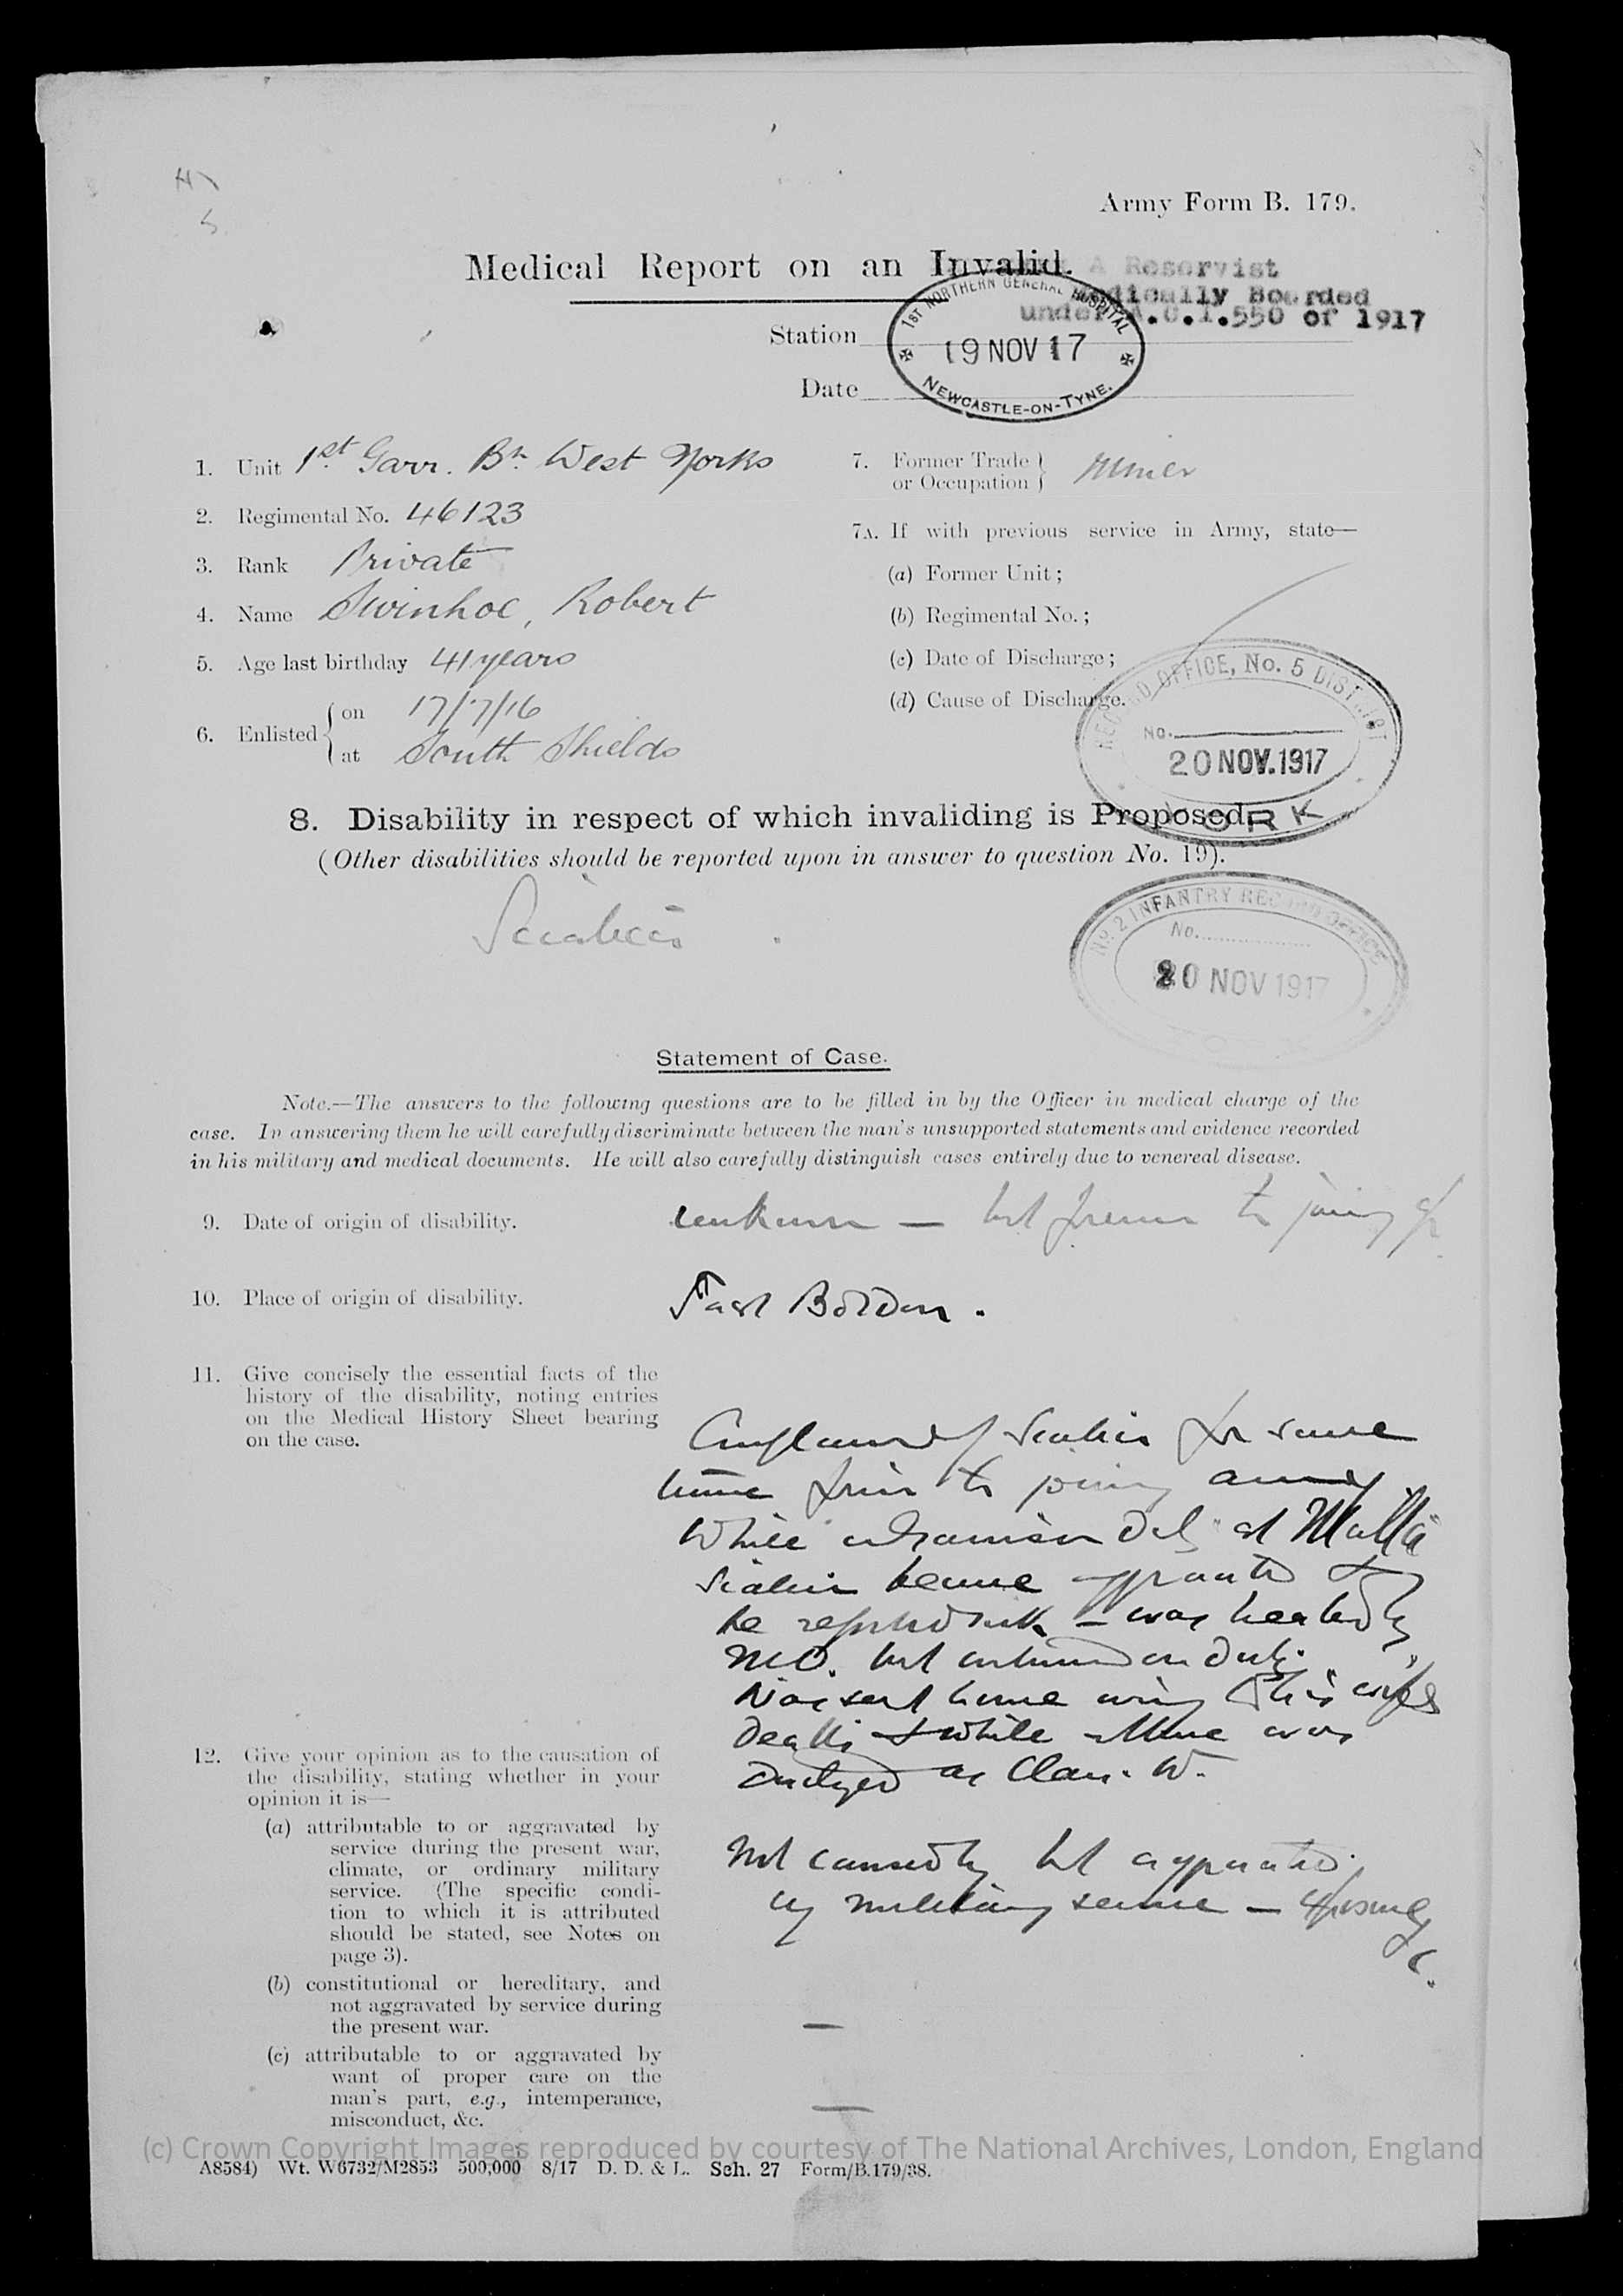 Army Form B. 179.
Medical Report on an Invalid.
A Reservist
Medically Boarded
under A.C.I.550 of 1917
1ST NORTHERN GENERAL HOSPITAL
19 NOV 17
NEWCASTLE-ON-TYNE.
Station
Date
1. Unit 1st Garr. Bn West Yorks
2. Regimental No. 46123
3. Rank Private
4. Name Swinhoe, Robert
5. Age last birthday 41 years
6. Enlisted { on 17/7/16
at South Shields
7. Former Trade or Occupation } Miner
7A. If with previous service in Army, state—
(a) Former Unit;
(b) Regimental No.;
(c) Date of Discharge;
(d) Cause of Discharge.
RECORD OFFICE, No. 5 DISTRICT
No.
20 NOV. 1917
YORK
8. Disability in respect of which invaliding is Proposed.
(Other disabilities should be reported upon in answer to question No. 19).
Sciatica
No. 2 INFANTRY RECORD OFFICE
No.
20 NOV 1917
Statement of Case.
Note.—The answers to the following questions are to be filled in by the Officer in medical charge of the
case. In answering them he will carefully discriminate between the man's unsupported statements and evidence recorded
in his military and medical documents. He will also carefully distinguish cases entirely due to venereal disease.
9. Date of origin of disability. unknown — but previous to joining up
10. Place of origin of disability. East Boldon.
11. Give concisely the essential facts of the
history of the disability, noting entries
on the Medical History Sheet bearing
on the case.
Complained of Sciatica for some
time prior to joining army
While on Garrison Duty at Malta
Sciatica became aggravated &
he reported sick — was treated by
M.O. but continued on Duty.
Was sent home owing to his wifes
Death & while at home was
as Class. W.
12. Give your opinion as to the causation of
the disability, stating whether in your
opinion it is—
(a) attributable to or aggravated by
service during the present war,
climate, or ordinary military
service. (The specific condi-
tion to which it is attributed
should be stated, see Notes on
page 3).
Not caused by but aggravated
by military service — exposure
&c.
(b) constitutional or hereditary, and
not aggravated by service during
the present war. —
(c) attributable to or aggravated by
want of proper care on the
man's part, e.g., intemperance,
misconduct, &c. —
(c) Crown Copyright Images reproduced by courtesy of The National Archives, London, England
A8584) Wt. W6732/M2853 500,000 8/17 D. D. & L. Sch. 27 Form/B.179/38.